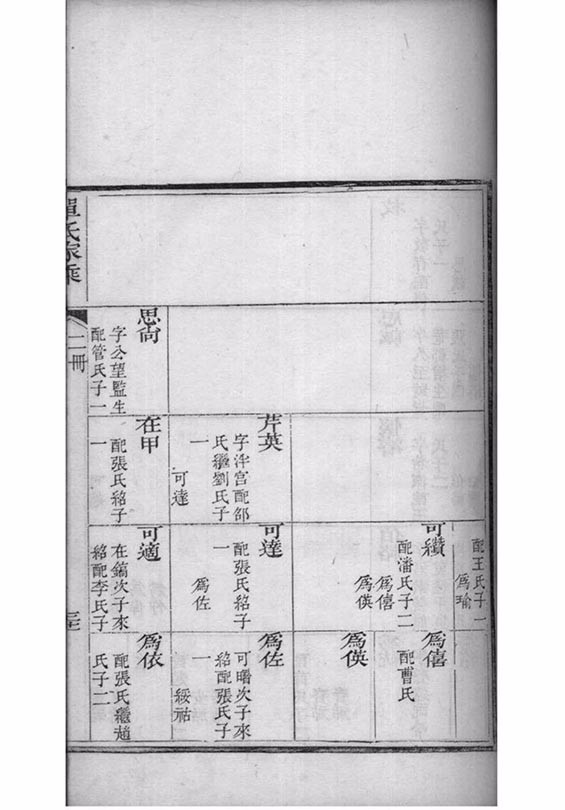 配王氏子一
爲瑜
可纘
配潘氏子二
爲僖
爲偀
爲僖
配曹氏
爲偀
芹英
字泮宫配邵
氏繼劉氏子
一
可達
可達
配張氏紹子
一
爲佐
爲佐
可曙次子來
紹配張氏子
一
綏祜
思尙
字公望監生
配管氏子一
在甲
配張氏紹子
一
可適
在鎬次子來
紹配李氏子
爲依
配張氏繼趙
氏子二
單氏家乘
二冊